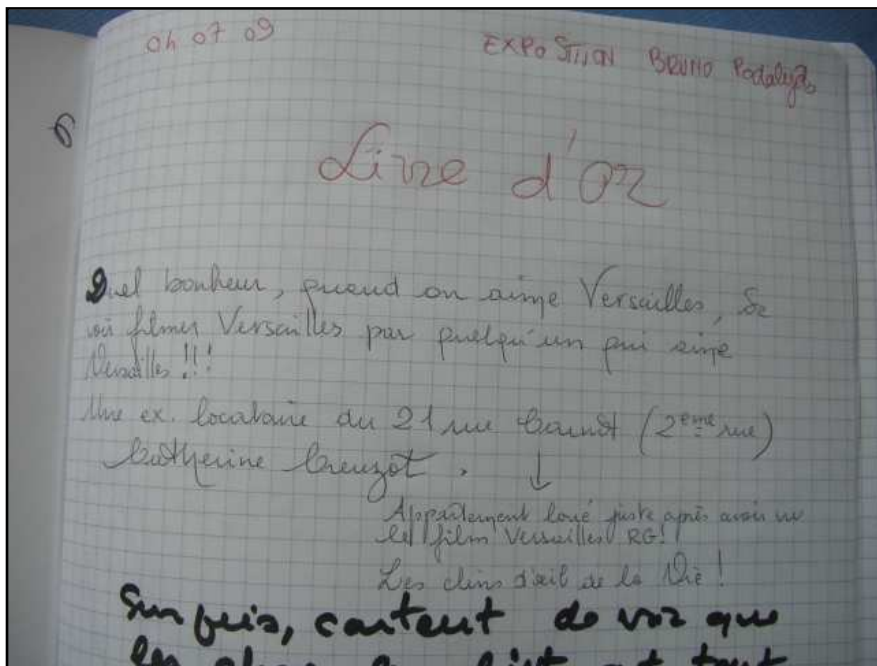 04 07 09
EXPOSTIION BRUNO Podalydès
6
Livre d'Or
Quel bonheur, quand on aime Versailles, de
voir filmer Versailles par quelqu'un qui aime
Versailles !!!
Une ex. locataire du 21 rue (2ème rue)
Catherine Creuzot.
Appartement loué juste après avoir vu
le film Versailles RG!
Les clins d'œil de la Vie !
Surpris, content de voir que
tout